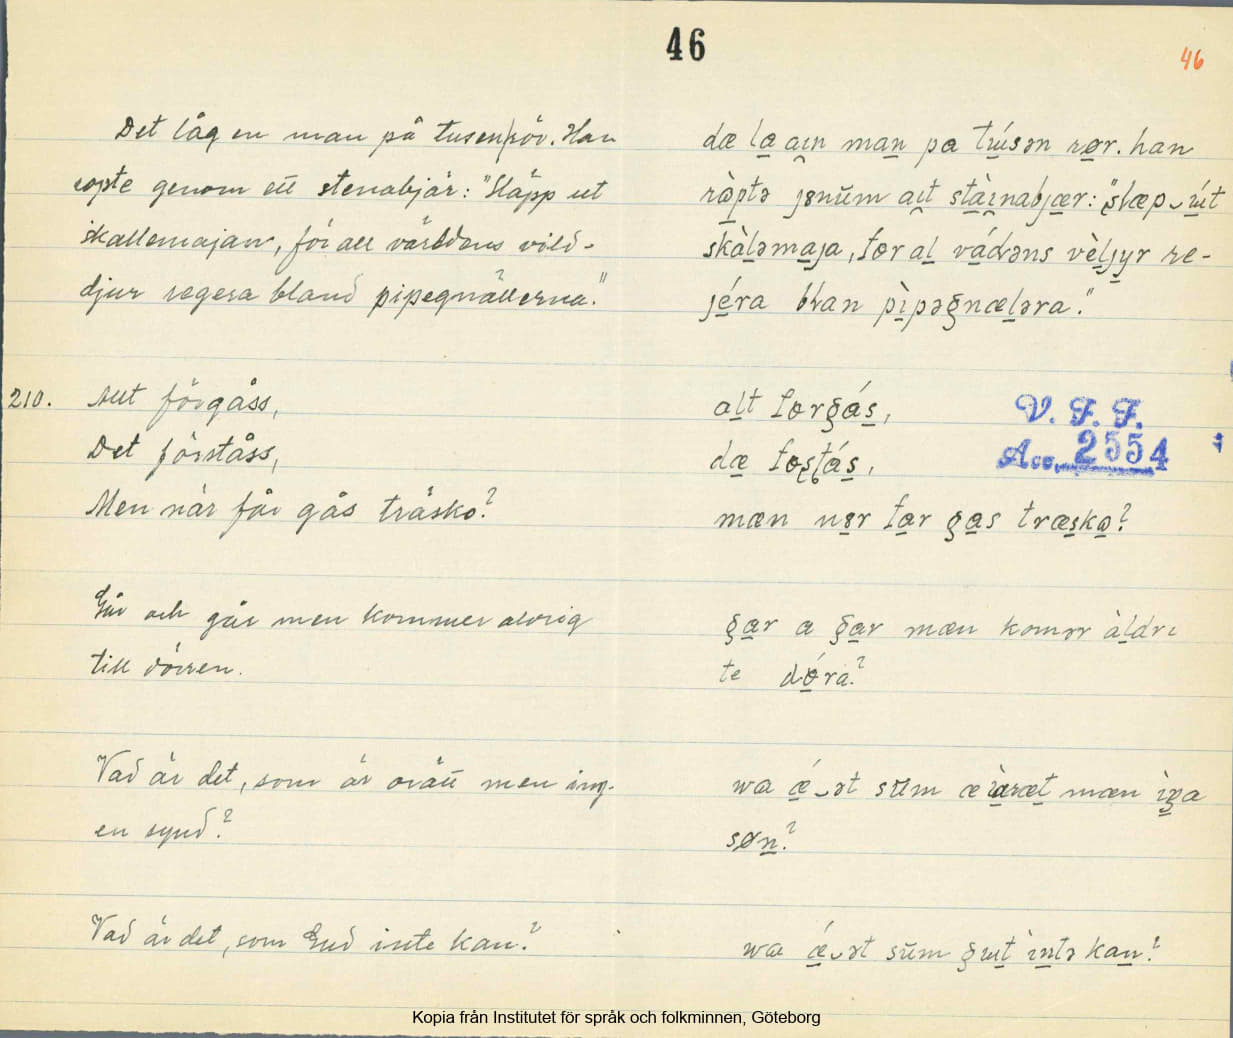 46
46
Det låg en man på tusen rör. Han
ropte genom ett stenabjär: "Släpp ut
skallemajan, för all världens vild-
djur regera bland pipegnällerna."
dæ la aın man pa tusən rør. han
ròptə jɞnŭm aıt stàınabjær: "slæp‿út
skàləmaja, fɵr al vádəns vèljyr re-
jéra blan pìpəgnæləra."
210.
Allt förgåss,
Det förståss,
Men när får gås träsko?
alt fɵrgás,
dæ fɵstás,
mæn nɞr far gas træskɷ?
V. F. F.
Acc. 2554
Går och går men kommer aldrig
till dörren.
gar a gar mæn komər àldrı
te dɵ́ra?
Vad är det, som är orätt men ing-
en synd?
wa ǽ‿ət sŭm æ àræt mæn ìŋa
søn?
Vad är det, som Gud inte kan?
wa ǽ‿ət sŭm gut ìntə kan?
Kopia från Institutet för språk och folkminnen, Göteborg